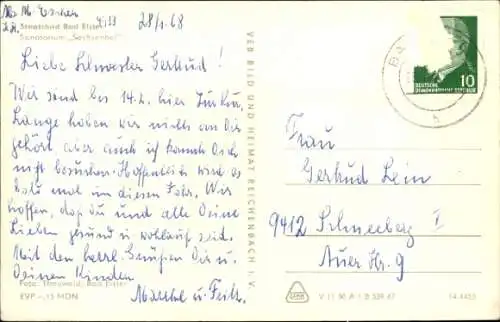 28/1.68
Staatsbad Bad Elster
Sanatorium "Sachsenhof"
Liebe Schwester Gertrud!
Wir sind bis 14.2. hier zur Kur,
Lange haben wir nichts von Dir
gehört, aber auch ich konnte Dich
nicht besuchen. Hoffentlich wird es
bald mal in diesem Jahr. Wir
hoffen, daß Du und alle Deine
Lieben gesund u. wohlauf seid.
Mit den herzl. Grüßen Dir u.
Deinen Kindern
Foto: Bad Elster
EVP -,15 MDN
VEB BILD UND HEIMAT REICHENBACH I. V.
10
DEUTSCHE
DEMOKRATISCHE REPUBLIK
BA
Frau
Gertrud Lein
9412 Schneeberg I
Auer Str. 9
V 11 50 A 1 B 539 67
14 4453